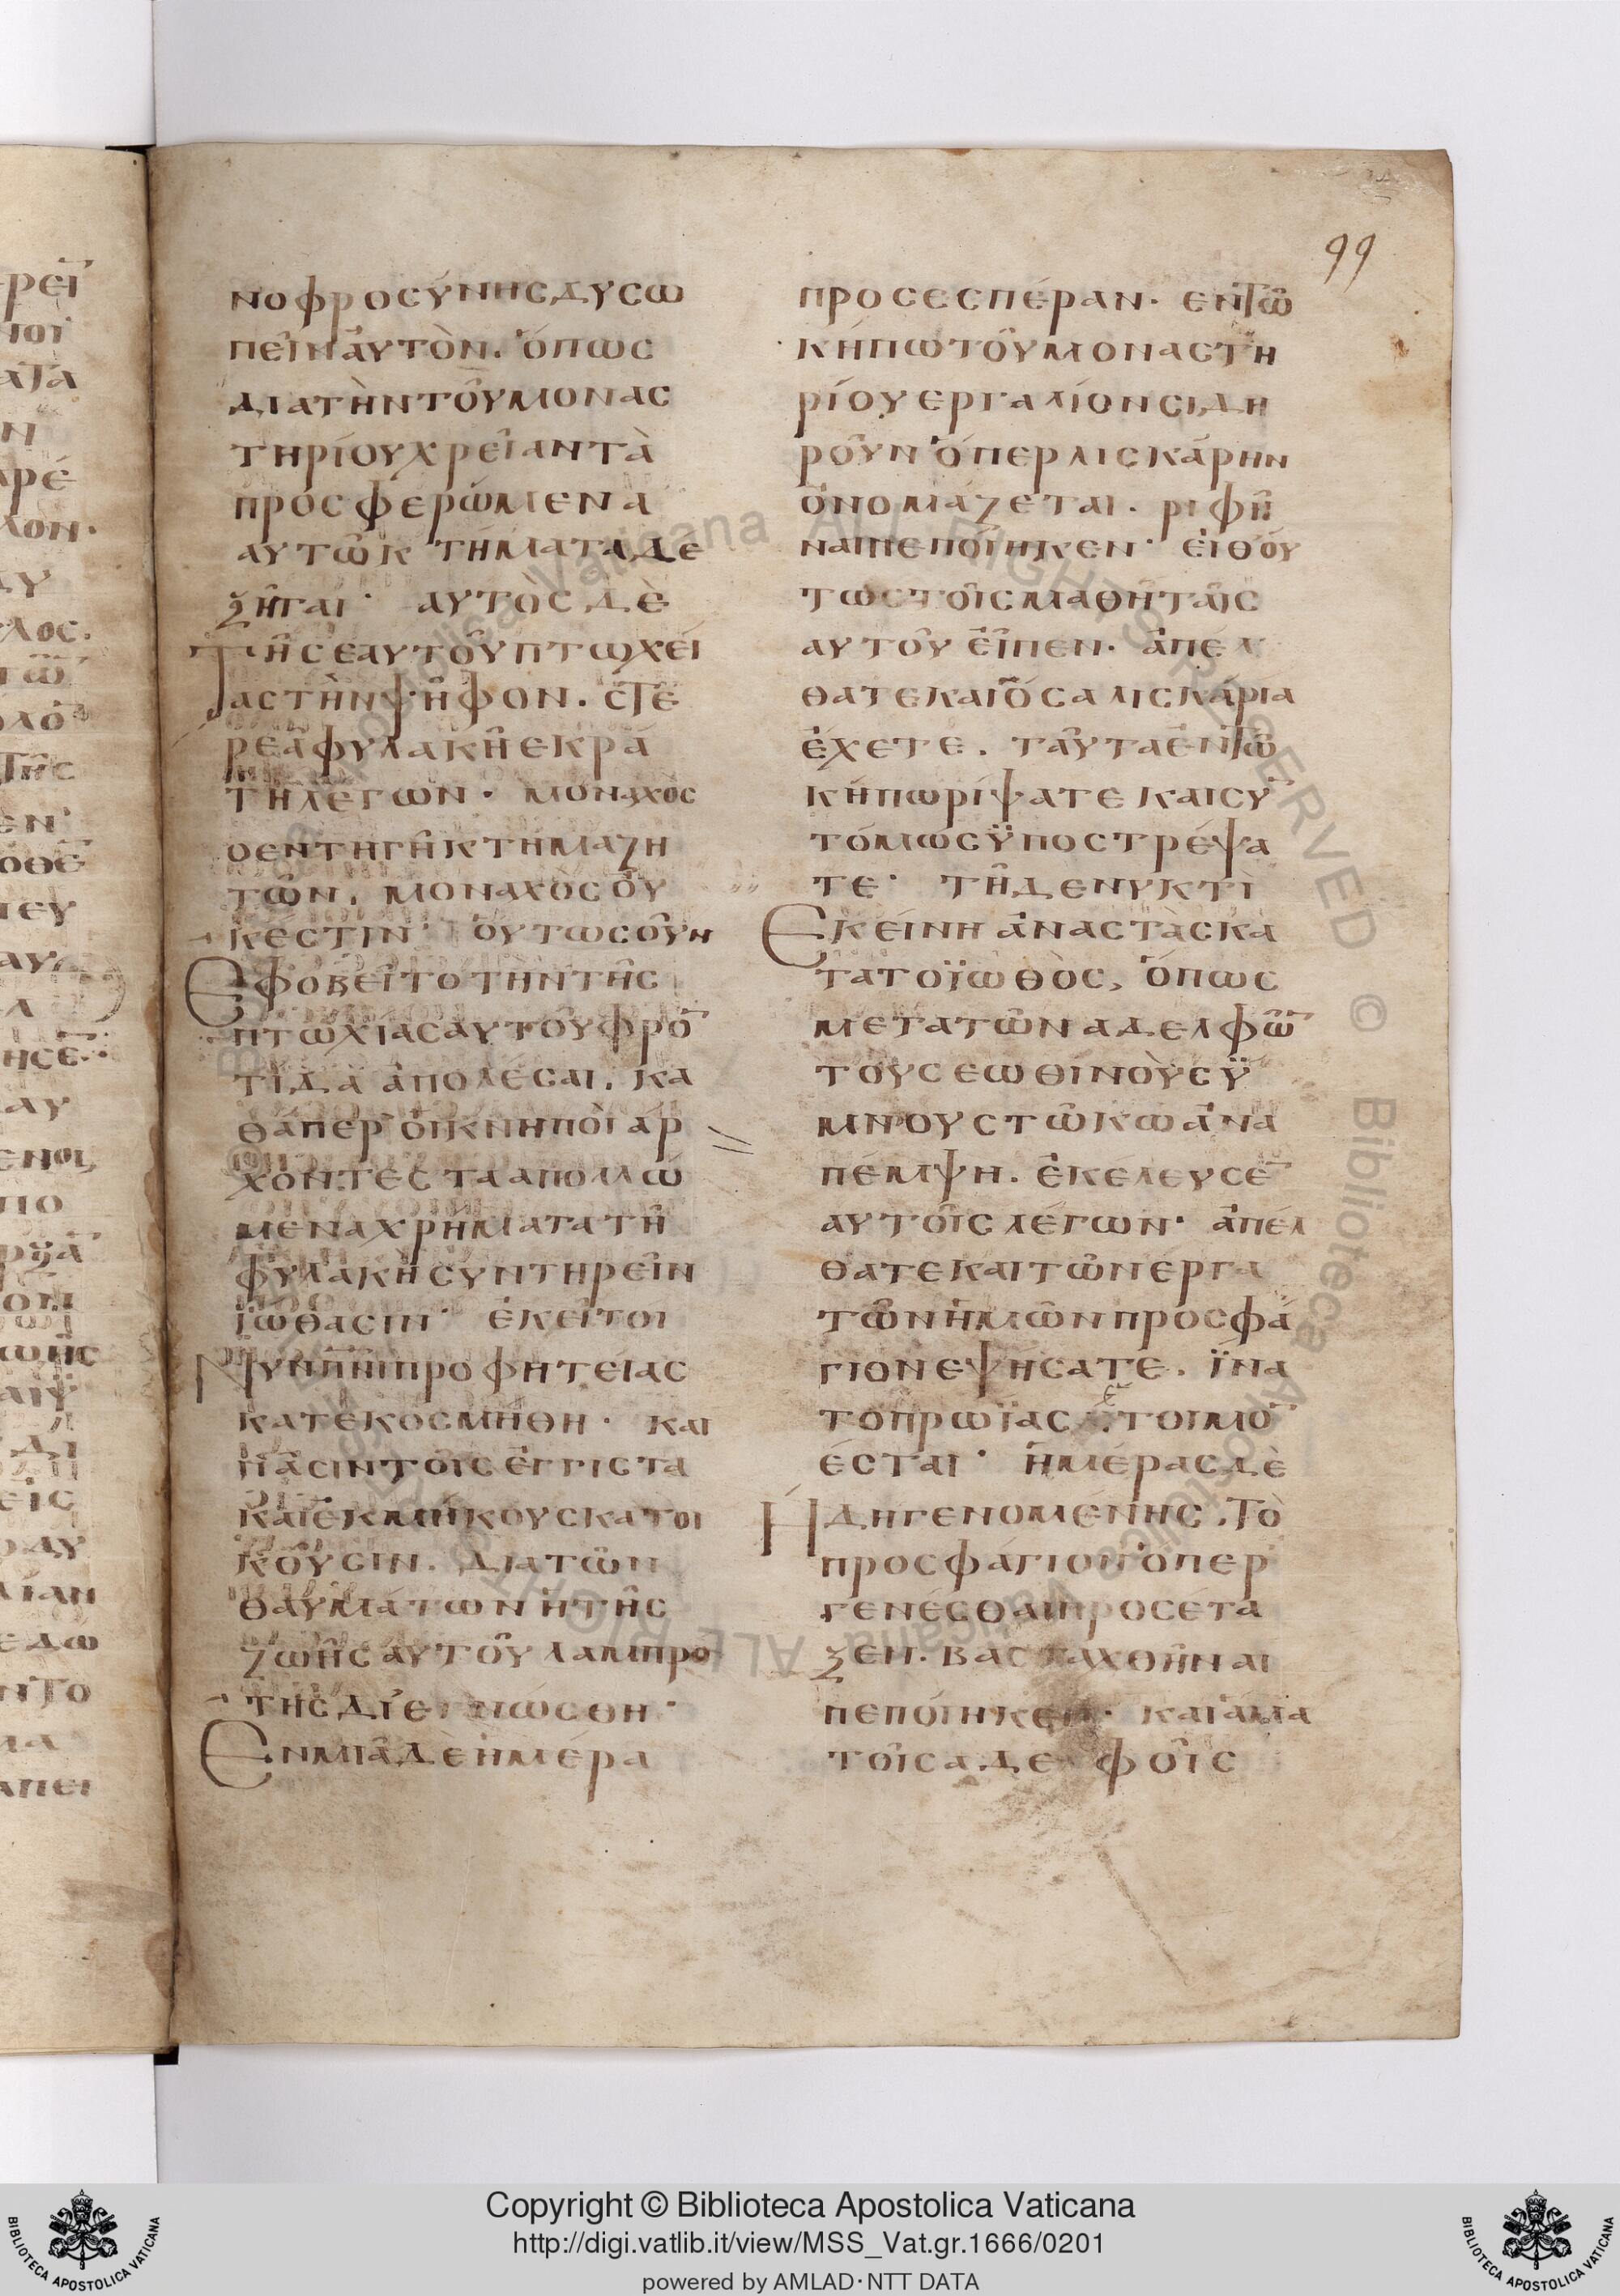 99
νοφροσύνησδυσω
πεῖναυτὸν. ὅπως
διατὴντοῦμονας
τηρίουχρείαντὰ
προσφερώμενα
αυτῶκτήματαδε
ξηται· αυτὸςδὲ
Τῆσεαυτοῦπτωχεί
αστὴνψῆφον. στε
ρεᾶφυλακῆεκρά
τηλέγων· μοναχὸς
οεντηγῆκτήμαζη
τῶν. μοναχὸςού
κέστιν· ούτωσοῦν
Εφοβεῖτοτὴντῆς
πτωχίασαυτοῦφρο̄
τίδα ἀπολέσαι. κα
θάπερ οἱκνηποὶάρ
χοντεςτααπολλώ
μεναχρήματατῆ
φυλακῆσυντηρεῖν
ϊώθασιν· ἐκεῖτοι
Νυνπν̄ιπροφητείας
κατεκοσμήθη· και
πᾶσιντοῖσέγγιστα
καιἐκμήκουσκατοι
κοῦσιν. διατῶν
θαυμάτωνἡτῆς
ζωῆσαυτοῦλαμπρό
τησδιεγνώσθη·
Ενμιᾶδεἡμέρα
προσεσπέραν· εντῶ
κήπωτοῦμοναστη
ρίουεργαλίονσιδη
ροῦνὅπερλισκάρην
ὀνομάζεται. ριφῆ
ναιπεποίηκεν· εἰθ'ού
τωστοῖσμαθηταῖς
αυτοῦεῖπεν· ἀπέλ
θατεκαιὅσαλισκάρια
ἔχετε. ταῦταἐντῶ
κήπωρίψατεκαισυ
τόμωςϋποστρέψα
τε· τῆδενυκτὶ
Εκείνηἀναστὰσκα
τατοϊωθὸς, ὅπως
μετατῶναδελφῶ̄
τουσεωθινοὺςϋ
μνουστῶκωἀνα
πέμψη. ἐκέλευσε̄
αυτοῖσλέγων· ἀπέλ
θατεκαιτῶνέργα
τῶνἡμῶνπροσφά
γιονεψήσατε. ϊνα
τοπρωϊασἑτοιμο̄
έσται· ἡμέρασδὲ
Ηδηγενομένης. Τὸ
προσφάγιονὅπερ
γενέσθαιπροσέτα
ξεν. βασταχθῆναι
πεποίηκεν· καιἅμα
τοῖσαδελφοῖς
Copyright © Biblioteca Apostolica Vaticana
http://digi.vatlib.it/view/MSS_Vat.gr.1666/0201
powered by AMLAD·NTT DATA
BIBLIOTECA APOSTOLICA VATICANA
BIBLIOTECA APOSTOLICA VATICANA